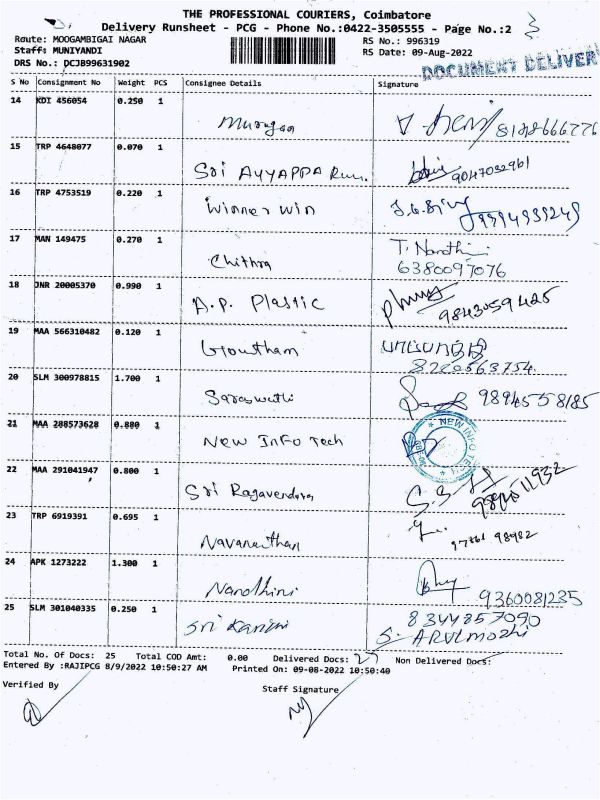 THE PROFESSIONAL COURIERS, Coimbatore
Delivery Runsheet - PCG - Phone No.:0422-3505555 - Page No.:2
Route: MOOGAMBIGAI NAGAR
RS No.: 996319
Staff: MUNIYANDI
RS Date: 09-Aug-2022
DRS No.: DCJB99631902
DOCUMENT DELIVER
S No Consignment No Weight PCS Consignee Details Signature
14 KDI 456054 0.250 1
Murugan
15 TRP 4648077 0.070 1
Sri AYYAPPA
9047032961
16 TRP 4753519 0.220 1
Winner Win
17 MAN 149475 0.270 1
Chithra T. Nandhini
6380097076
18 JNR 20005370 0.990 1
A.P. Plastic
9843059425
19 MAA 566310482 0.120 1
Goutham
8220563754
20 SLM 300978815 1.700 1
Saraswathi 9894558185
21 MAA 288573628 0.880 1
New Info Tech NEW INFO TECH
22 MAA 291041947 0.800 1
Sri Ragavendra
23 TRP 6919391 0.695 1
Navaneethan 97861 98982
24 APK 1273222 1.300 1
Nandhini 9360081235
25 SLM 301040335 0.250 1
8344857090
Sri S. ARULmozhi
Total No. Of Docs: 25 Total COD Amt: 0.00 Delivered Docs: Non Delivered Docs:
Entered By :RAJIPCG 8/9/2022 10:50:27 AM Printed On: 09-08-2022 10:50:40
Verified By Staff Signature